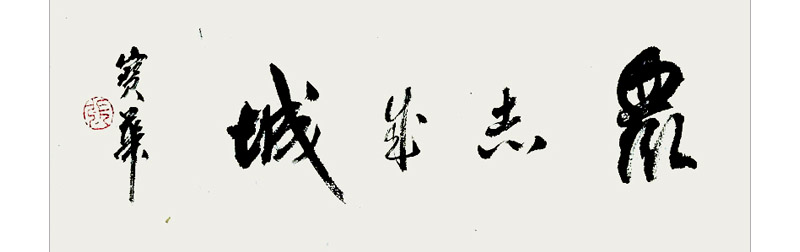 眾志成城
寶華
張